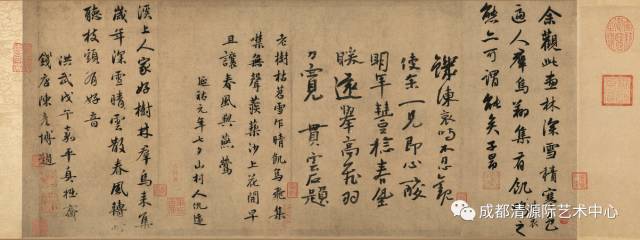 余觀此畫林深雪積寒色
逼人群烏翔集有飢凍哀之
態亦可謂能矣子昂
饑凍哀鳴不忍觀
使余一見即心酸
明年豐稔春塘
暖遠舉高飛羽
力寬 貫雲石題
老樹枯苔雪乍晴飢烏飛集
集無聲 沙上花開早
且讓春風與燕鶯
延祐元年七夕山村人仇遠
溪上人家好樹林群烏來集
歲年深雪晴雲散春風轉
聽枝頭有好音
洪武戊午嘉平真樵齋
錢唐陳彥博題
成都清源际艺术中心